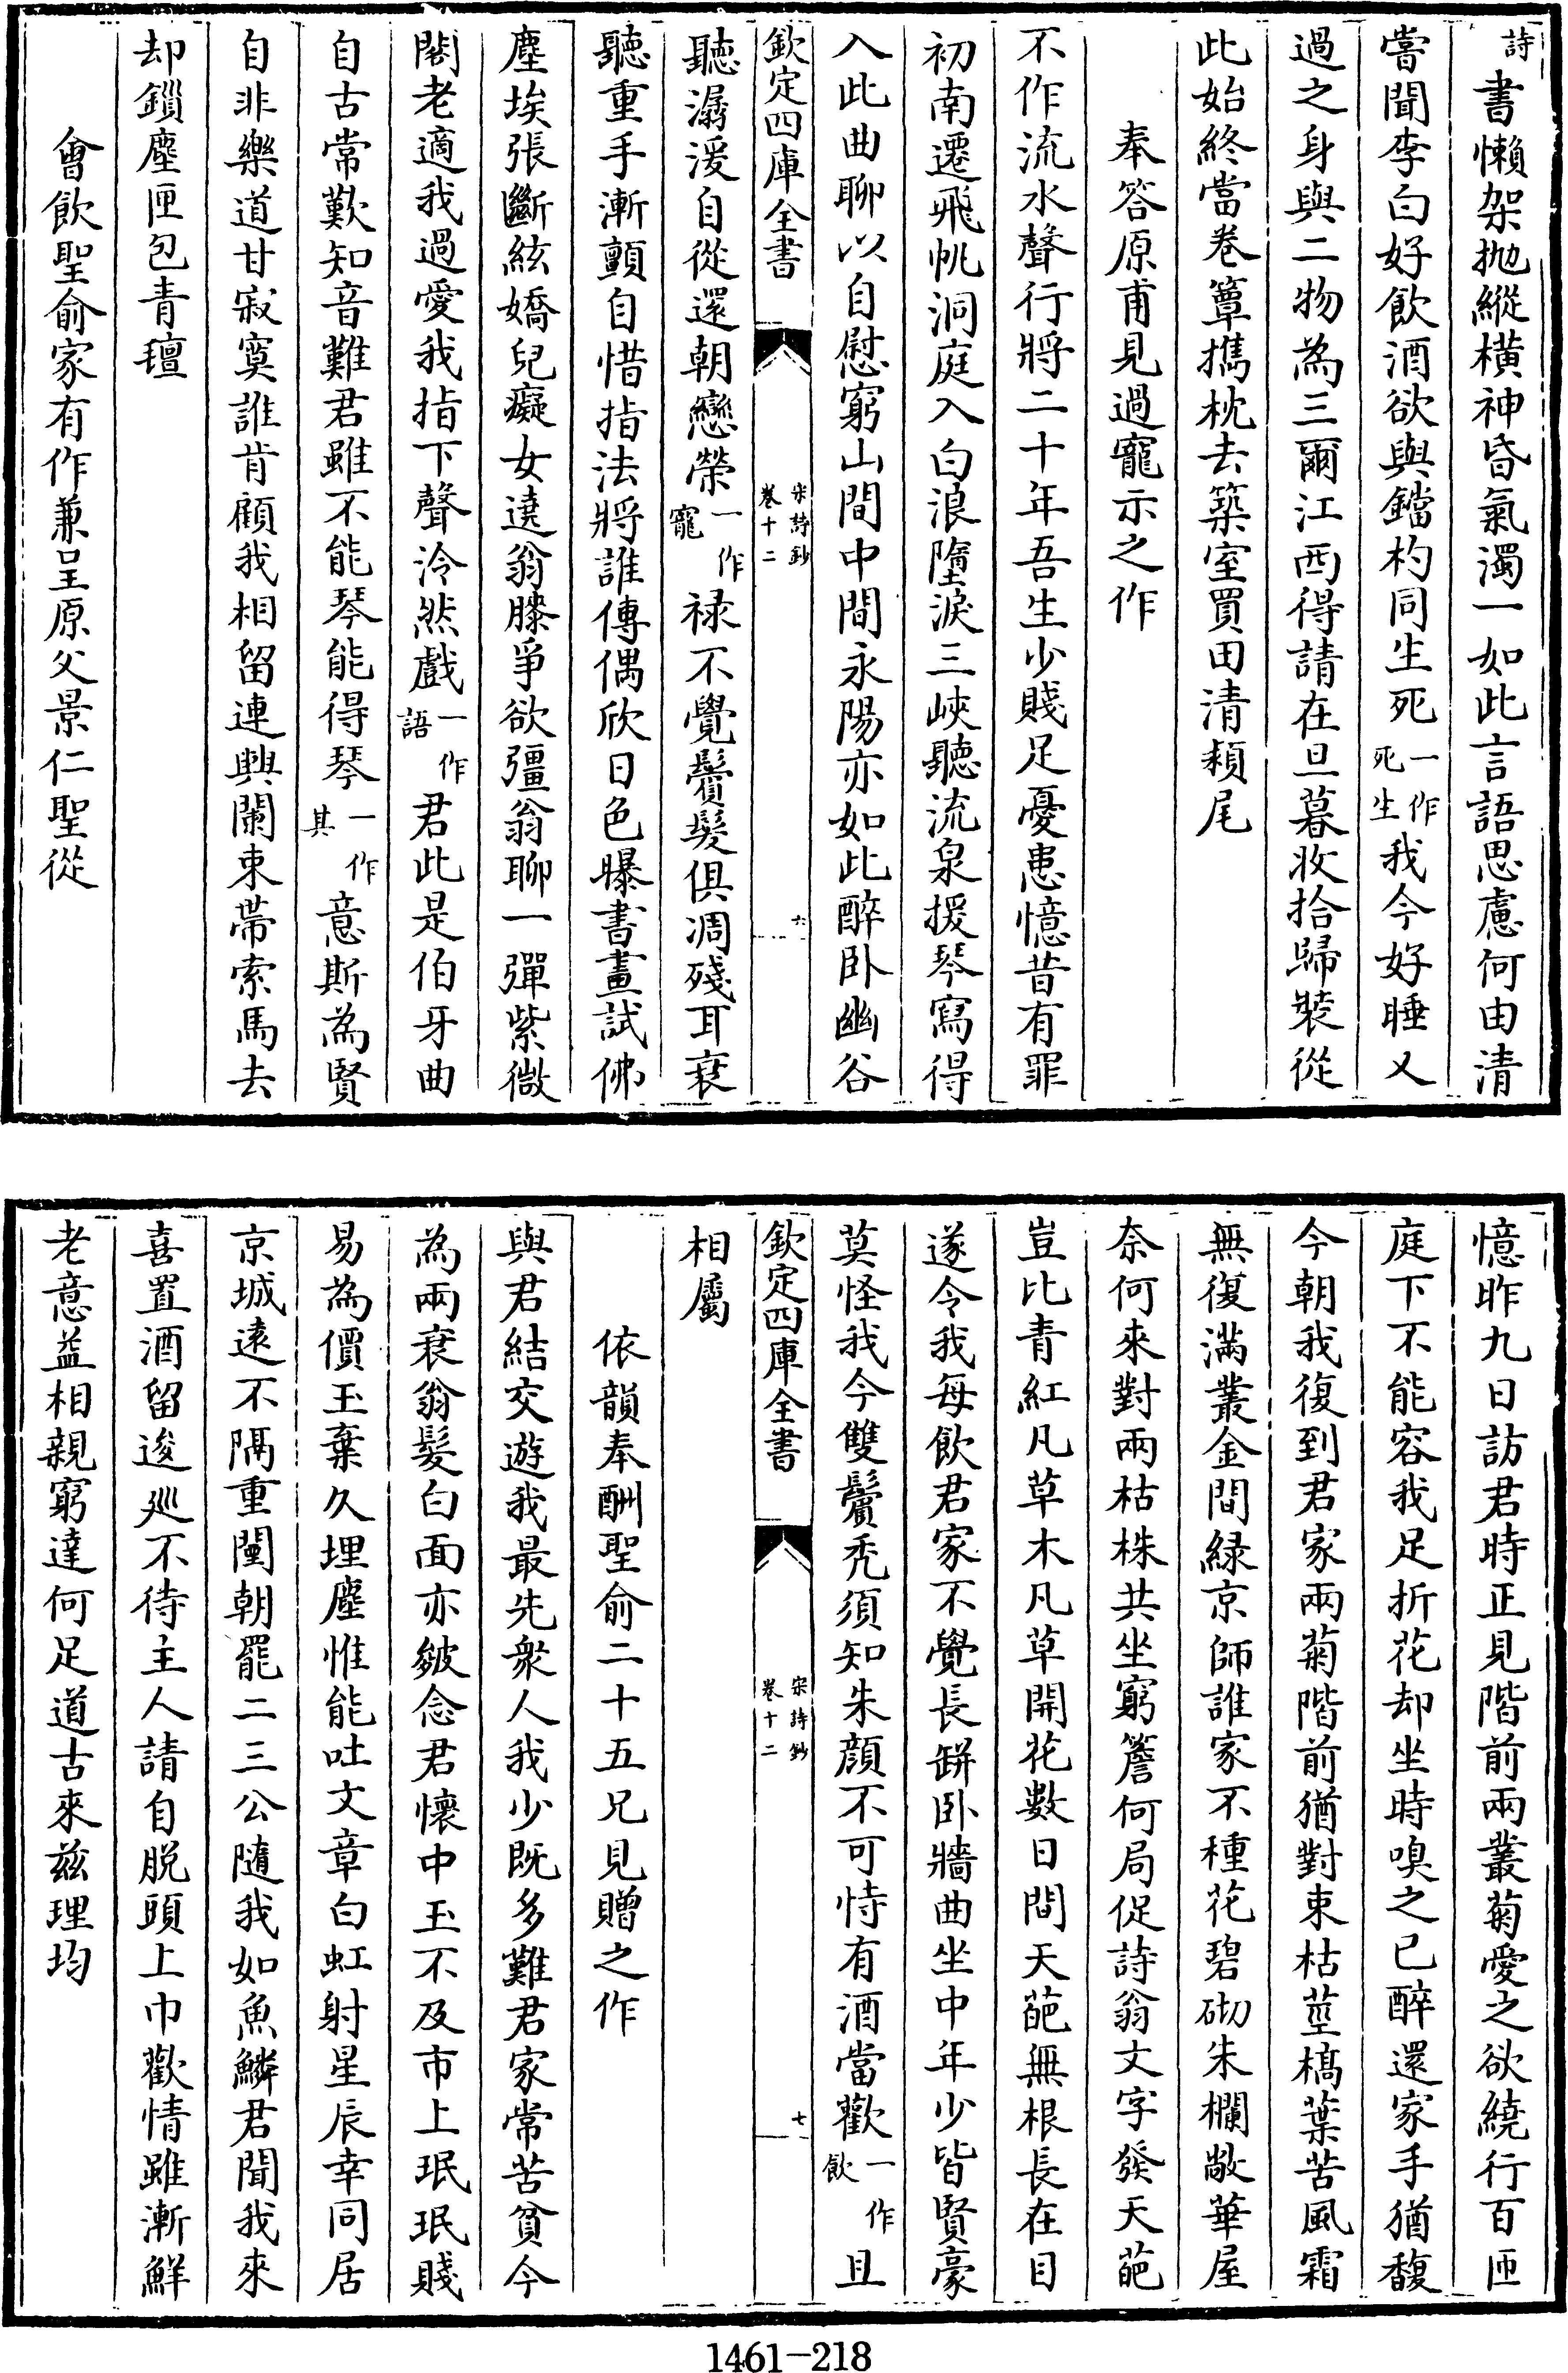 詩書懶架拋縱橫神昏氣濁一如此言語思慮何由清
嘗聞李白好飲酒欲與鐺杓同生死一作死生我今好睡又
過之身與二物為三爾江西得請在旦暮收拾歸裝從
此始終當卷簟攜枕去築室買田清潁尾
奉答原甫見過寵示之作
不作流水聲行將二十年吾生少賤足憂患憶昔有罪
初南遷飛帆洞庭入白浪墮淚三峽聽流泉援琴寫得
入此曲聊以自慰窮山間中間永陽亦如此醉卧幽谷
欽定四庫全書
宋詩鈔
卷十二
六
聽潺湲自從還朝戀榮一作寵祿不覺鬢髮俱凋殘耳衰
聽重手漸顫自惜指法將誰傳偶欣日色曝書畫試佛
塵埃張斷絃嬌兒癡女遶翁膝爭欲彊翁聊一彈紫微
閣老適我過愛我指下聲泠然戲一作語君此是伯牙曲
自古常歎知音難君雖不能琴能得琴一作其意斯為賢
自非樂道甘寂寞誰肯顧我相留連興闌束帶索馬去
却鎖塵匣包青氊
會飲聖俞家有作兼呈原父景仁聖從
憶昨九日訪君時正見階前兩叢菊愛之欲繞行百匝
庭下不能容我足折花却坐時嗅之已醉還家手猶馥
今朝我復到君家兩菊階前猶對束枯莖槁葉苦風霜
無復滿叢金間綠京師誰家不種花碧砌朱欄敞華屋
奈何來對兩枯株共坐窮簷何局促詩翁文字發天葩
豈比青紅凡草木凡草開花數日間天葩無根長在目
遂令我每飲君家不覺長缾卧牆曲坐中年少皆賢豪
莫怪我今雙鬢禿須知朱顏不可恃有酒當歡一作飲且
欽定四庫全書
宋詩鈔
卷十二
七
相屬
依韻奉酬聖俞二十五兄見贈之作
與君結交遊我最先衆人我少既多難君家常苦貧今
為兩衰翁髮白面亦皺念君懷中玉不及市上珉珉賤
易為價玉棄久埋塵惟能吐文章白虹射星辰幸同居
京城遠不隔重闉朝罷二三公隨我如魚鱗君聞我來
喜置酒留逡巡不待主人請自脫頭上巾歡情雖漸鮮
老意益相親窮達何足道古來兹理均
1461-218